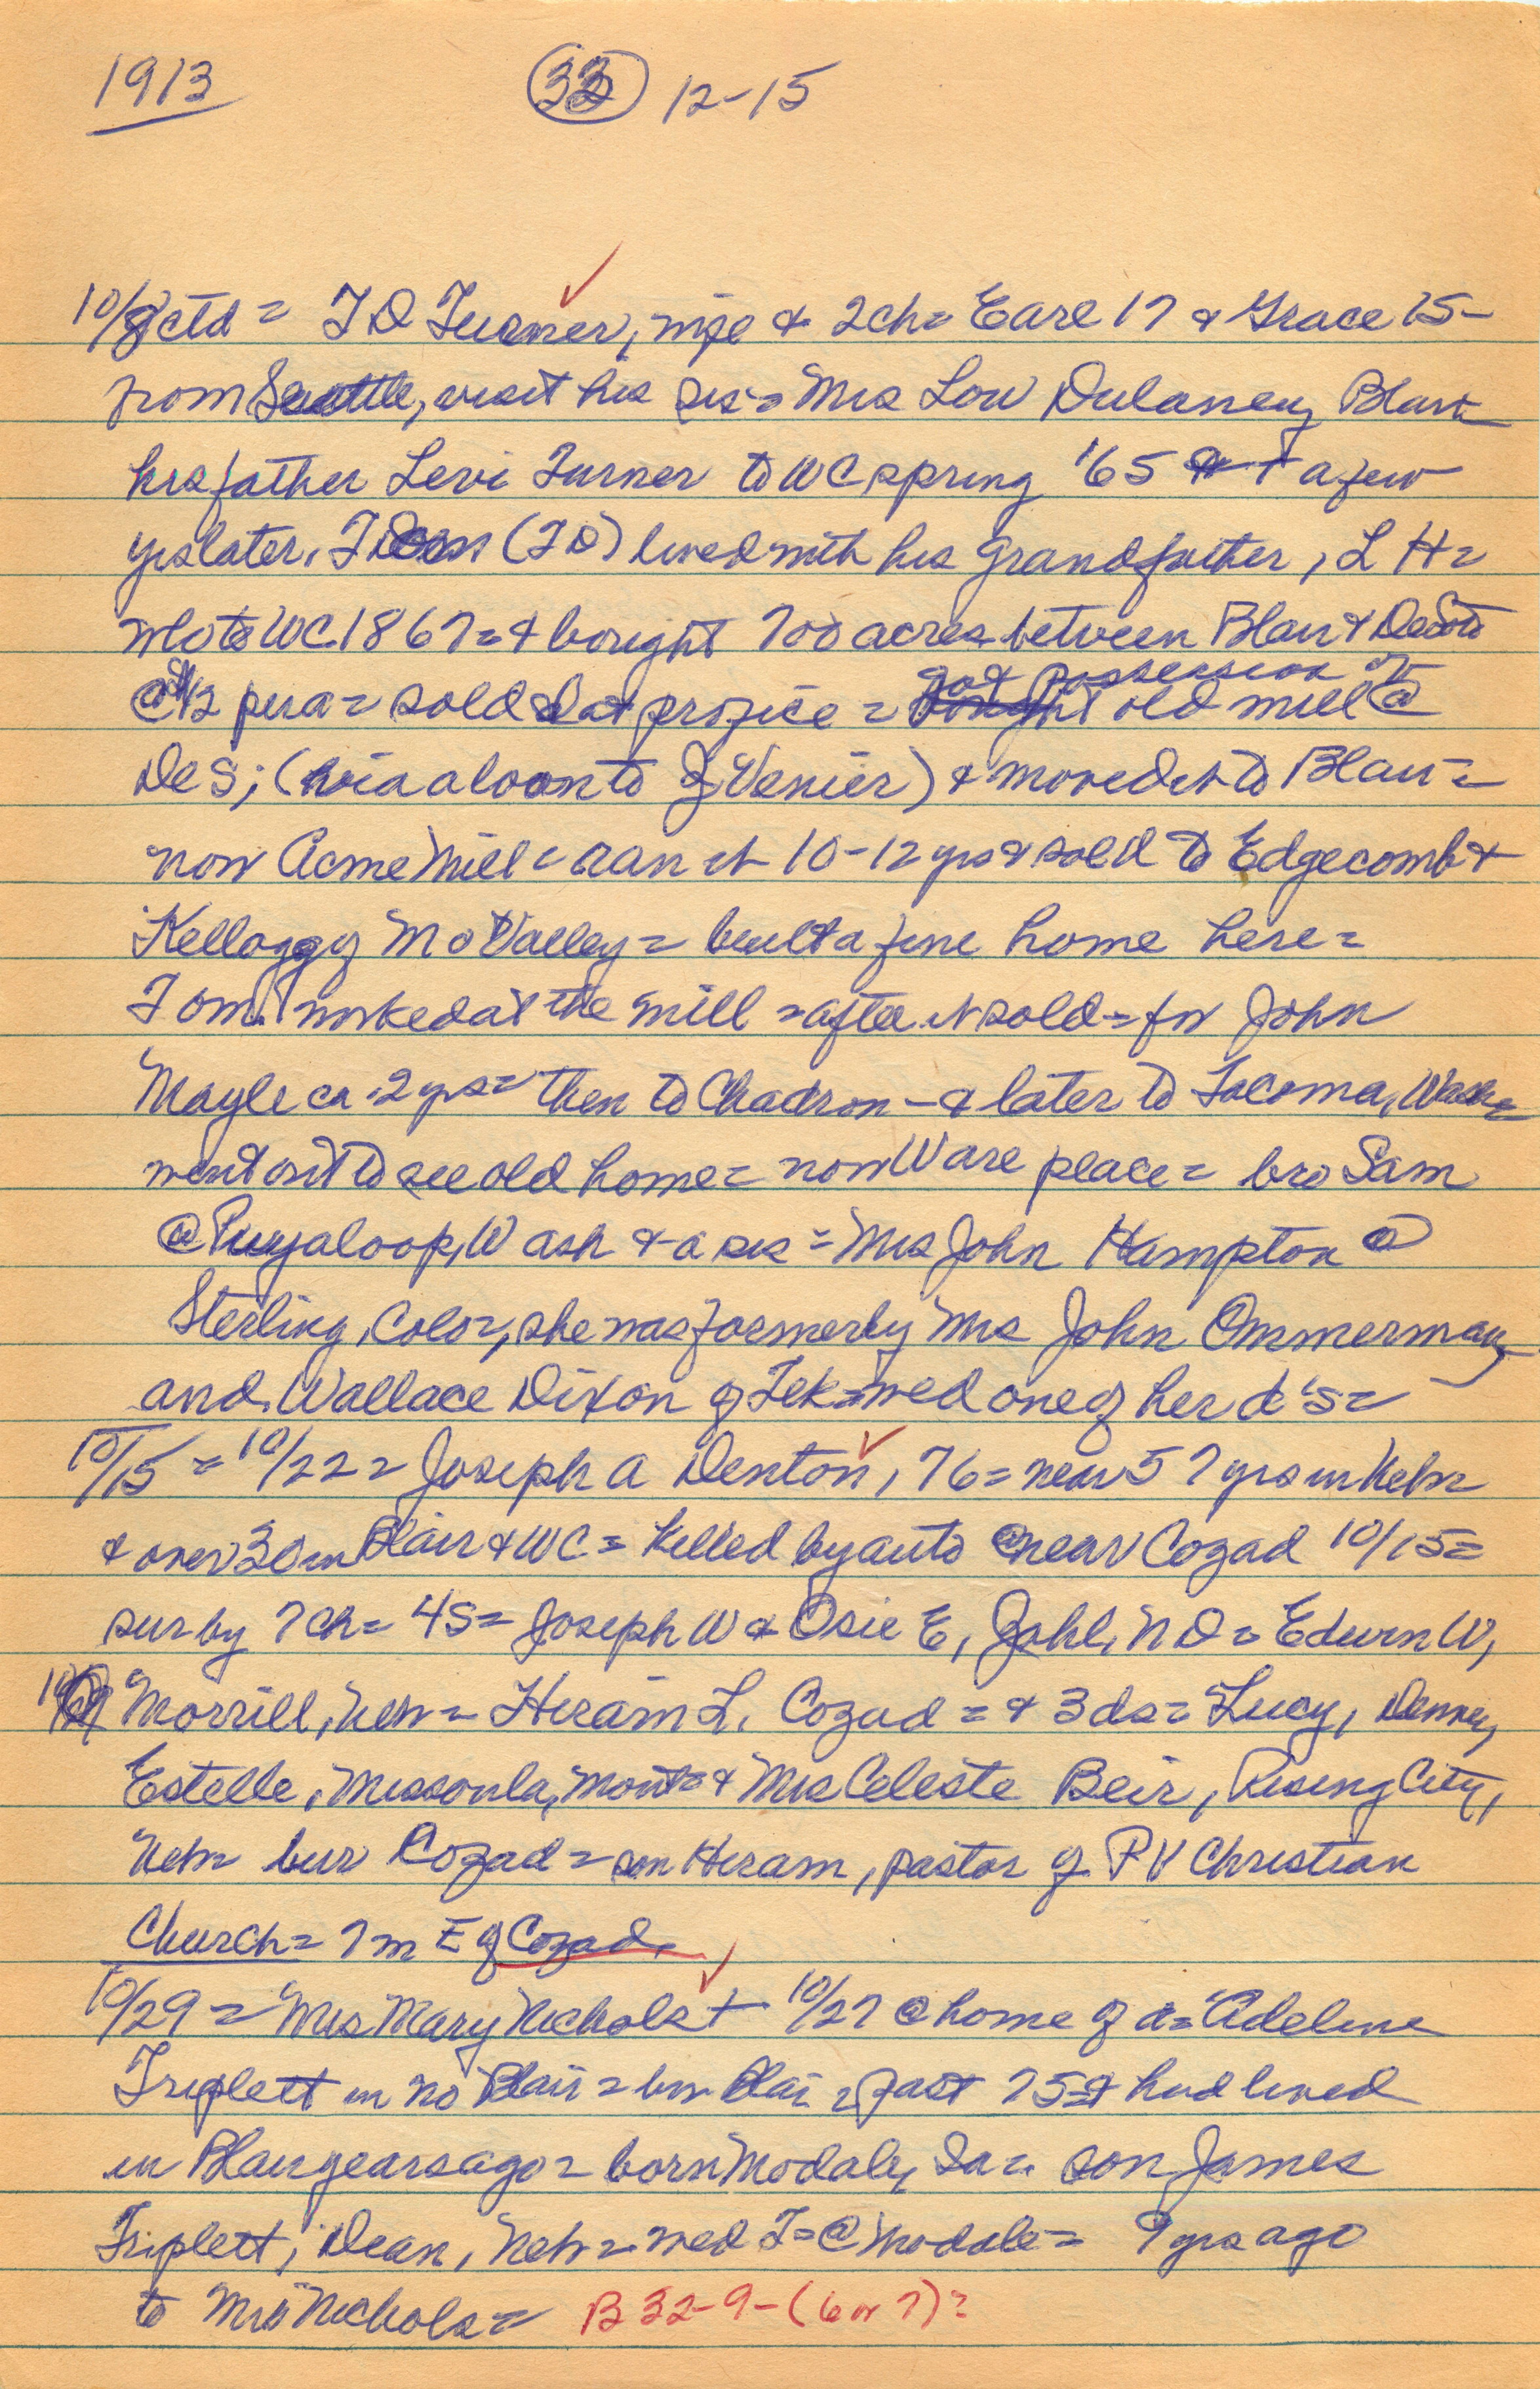 1913 (33) 12-15
10/8 ctd = T D Turner, wife & 2ch = Earl 17 & Grace 15 -
from Seattle, visit his sis = Mrs Lou Dulaney Blair
his father Levi Turner to WC spring '65 & a few
yrs later, (TD) lived with his grandfather, L H =
to WC 1867 = & bought 700 acres between Blair & DeSoto
@ $12 per a = sold at profice = got possession of old mill @
DeS; (via a loan to J Venier) & moved it to Blair =
now Acme Mill = ran it 10-12 yrs & sold to Edgecomb &
Kellogg of Mo Valley = built a fine home here =
Tom worked at the mill = after it sold = for John
Mayle ca 2 yrs = then to Chadron - & later to Tacoma, Wash =
went out to see old home = now Ware place = bro Sam
@ Puyaloop, Wash & a sis = Mrs John Hampton @
Sterling, Colo, she was formerly Mrs John Ommerman,
and Wallace Dixon of Tek = wed one of her d's =
10/15 = 10/22 = Joseph A Denton, 76 = near 57 yrs in Nebr
& over 30 in Blair & WC = killed by auto near Cozad 10/15 =
sur by 7 ch = 4s = Joseph W & Osie E, Jahl, ND = Edwin W,
Morrill, Nebr = Hiram L, Cozad = & 3 ds = Lucy, Denver,
Estelle, Missoula, Mont & Mrs Celeste Beir, Rising City,
Nebr bur Cozad = son Hiram, pastor of PV Christian
Church = 7 m E of Cozad.
10/29 = Mrs Mary Nichols + 10/27 @ home of d = Adeline
Triplett in no Blair = bur Blair = past 75 & had lived
in Blair years ago = born Modale, Ia = son James
Triplett, Dean, Nebr = wed T = @ Modale = 9 yrs ago
to Mr Nichols = B 32-9-(6 or 7) =